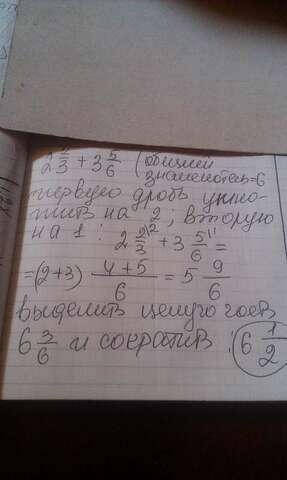 2 2/3 + 3 5/6 (общий
знаменатель=6
первую дробь умно-
жить на 2; вторую
на 1: 2 2/3 + 3 5/6 =
=(2+3) 4+5/6 = 5 9/6
выделить целую часть
6 3/6 и сократив: 6 1/2